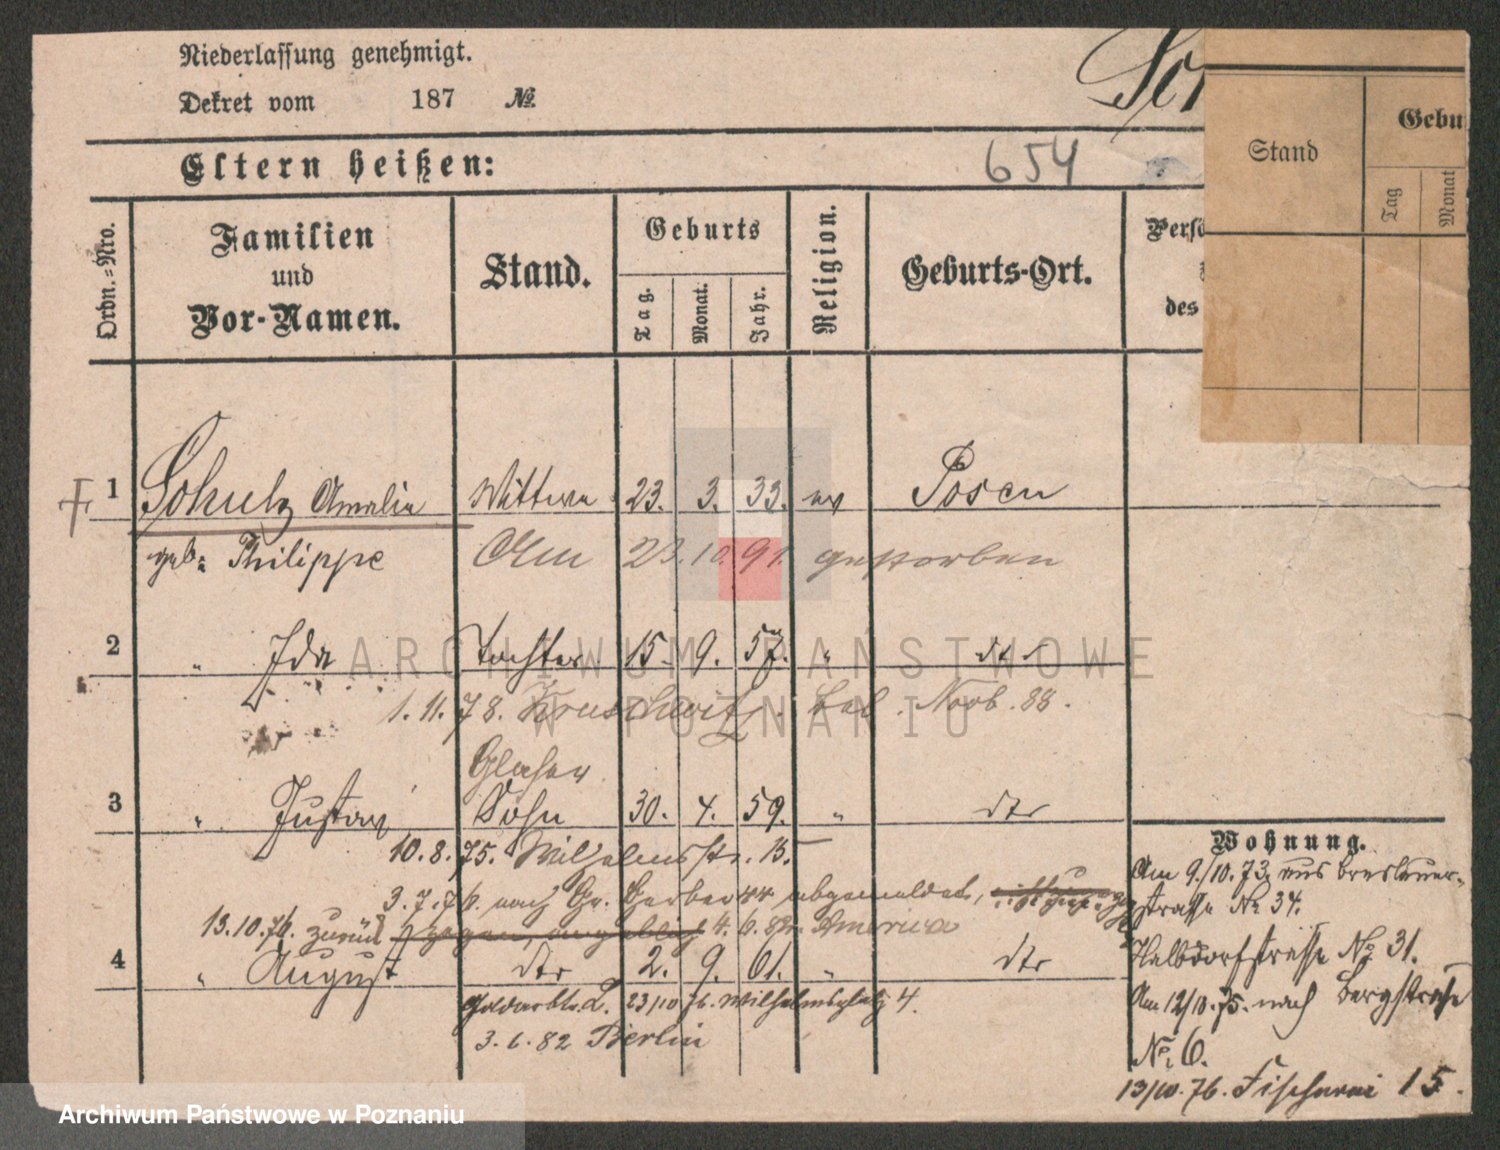 Niederlassung genehmigt.
Dekret vom 187 No.
Eltern heißen:
654
Ordn.=Nro.
Familien
und
Vor-Namen.
Stand.
Geburts
Tag.
Monat.
Jahr.
Religion.
Geburts-Ort.
Persö
des
Stand
Gebu
Tag
Monat
1 Schulz Amalie Wittwe 23. 3. 33. ev Posen
geb. Philippe Am 23.10.91. gestorben
2 " Ida Tochter 15. 9. 57. " dto
1.11.78. Kruschwitz.
Glaser
3 " Gustav Sohn 30. 4. 59. " dto
10.8.75. Wilhelmsstr. 15.
3.7.76. nach Gr. Gerberstr abgemeldet,
13.10.76. zurück 4.6.82. America
4 " August dto 2. 9. 61. " dto
23/10 76. Wilhelmsplatz 4.
3.6.82 Berlin
Wohnung.
Am 9./10.73. aus Breslauer-
strasse No 34.
Halbdorfstrasse No 31.
Am 12/10.75. nach Bergstrasse
No. 6.
13/10.76. Fischerei 15.
ARCHIWUM PAŃSTWOWE
W POZNANIU
Archiwum Państwowe w Poznaniu